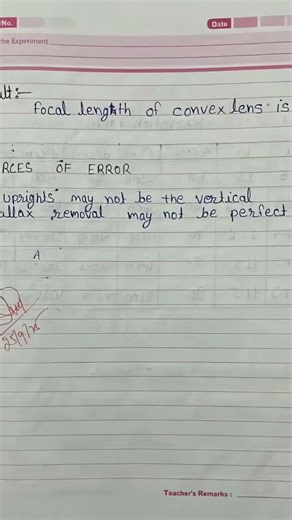 No.
Date
he Experiment
ult:-
focal length of convex lens is
RCES OF ERROR
uprights may not be the vertical
allax removal may not be perfect
A
25/9/25
Teacher's Remarks :